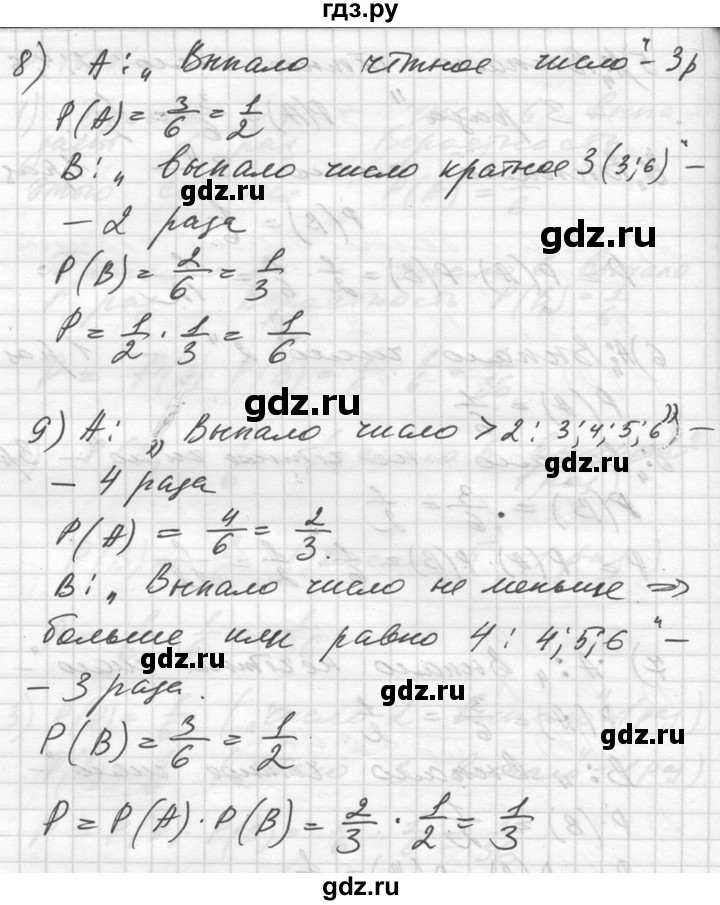 гдз.ру
8) A: „Выпало чётное число“ - 3р
P(A) = 3/6 = 1/2
B: „выпало число кратное 3 (3; 6)“ -
gdz.ru
- 2 раза
gdz.ru
P(B) = 2/6 = 1/3
P = 1/2 · 1/3 = 1/6
gdz.ru
9) A: „Выпало число > 2: 3; 4; 5; 6“) -
- 4 раза
P(A) = 4/6 = 2/3.
B: „Выпало число не меньше =>
больше или равно 4: 4; 5; 6“ -
gdz.ru
- 3 раза.
gdz.ru
P(B) = 3/6 = 1/2
gdz.ru
P = P(A) · P(B) = 2/3 · 1/2 = 1/3
gdz.ru